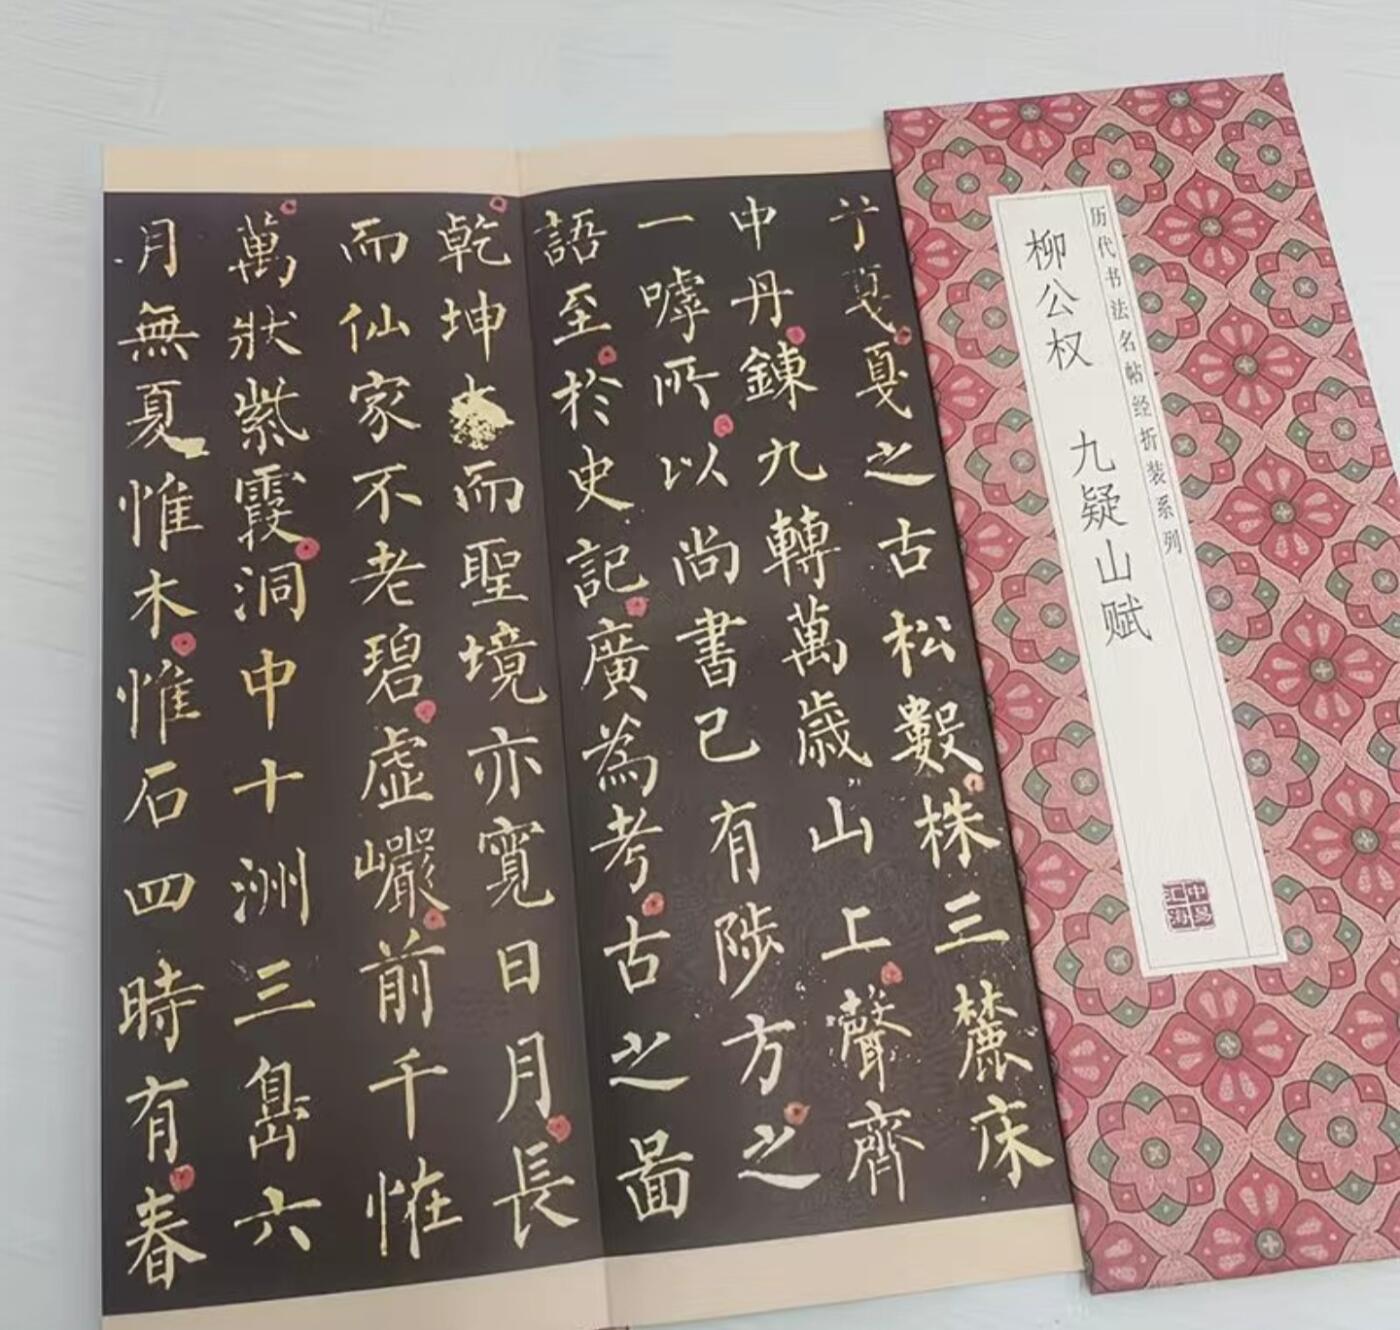 历代书法名帖经折装系列
柳公权 九疑山赋
中易
汇海
戛戛之古松數株三麓床
中丹錬九轉萬歲山上聲齊
一嘑所以尚書已有陟方之
語至於史記廣為考古之啚
乾坤而聖境亦寬日月長
而仙家不老碧虛巖前千恠
萬狀紫霞洞中十洲三島六
月無夏惟木惟石四時有春